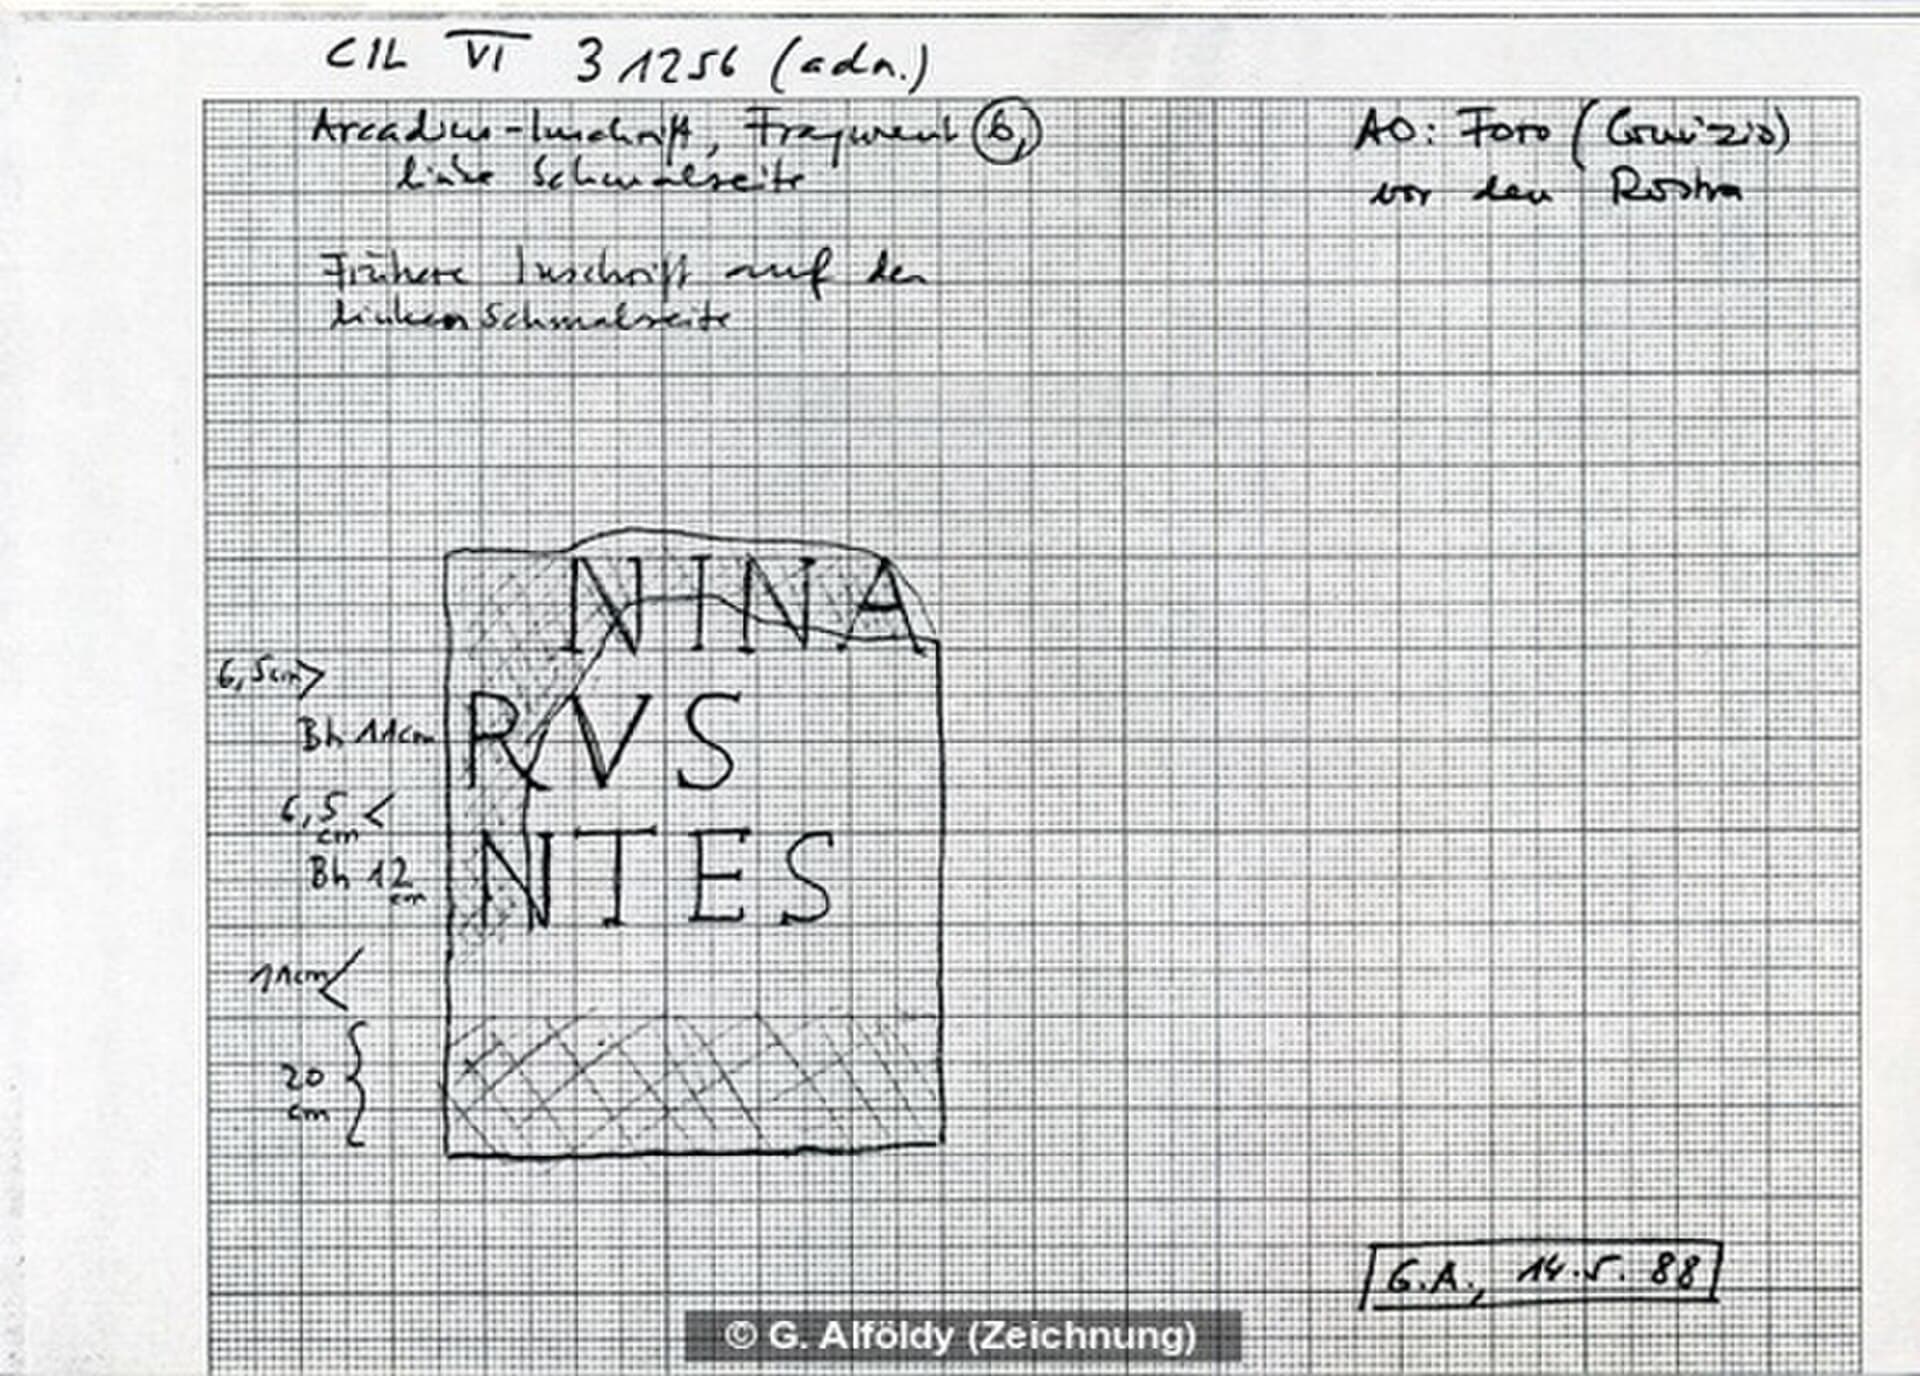 CIL VI 31256 (adn.)
Arcadius-Inschrift, Fragment b,
linke Schmalseite
AO: Foro (Comizio)
vor den Rostra
Frühere Inschrift auf der
linken Schmalseite
NINA
6,5cm
RVS
Bh 11cm
6,5
cm
NTES
Bh 12
cm
11cm
20
cm
G.A., 14.5.88
© G. Alföldy (Zeichnung)